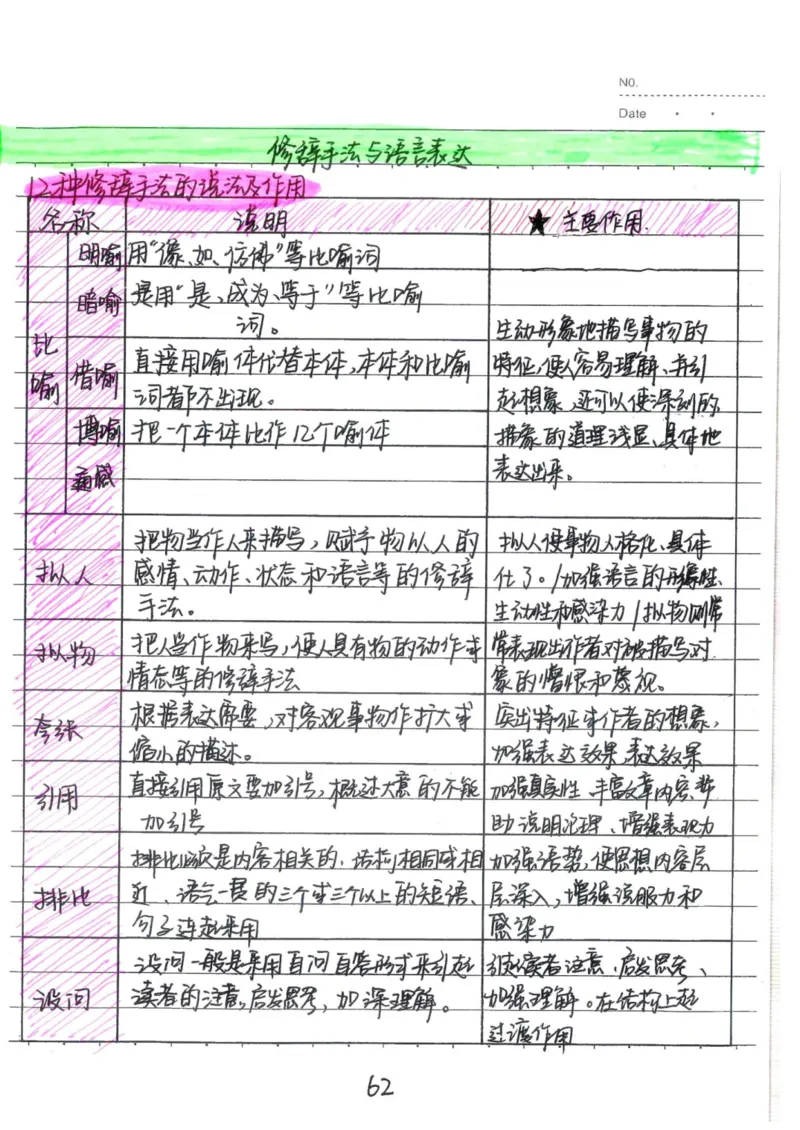 NO.
Date
修辞手法与语言表达
12种修辞手法的说法及作用
名称 说明 ★主要作用.
比喻
明喻 用“像、如、仿佛”等比喻词
暗喻 是用“是、成为、等于”等比喻
词。
借喻 直接用喻体代替本体,本体和比喻
词都不出现。
博喻 把一个本体比作12个喻体
通感
生动形象地描写事物的
特征,使人容易理解、并引
起想象,还可以使深刻的
抽象的道理浅显、具体地
表达出来。
拟人
把物当作人来描写,赋予物以人的
感情、动作、状态和语言等的修辞
手法。
拟人使事物人格化、具体
化了。/加强语言的形象性、
生动性和感染力/拟物则常
拟物
把人当作物来写,使人具有物的动作或
情态等的修辞手法
常表现出作者对被描写对
象的憎恨和蔑视。
夸张
根据表达需要,对客观事物作扩大或
缩小的描述。
突出特征或作者的想象,
加强表达效果,表达效果
引用
直接引用原文要加引号,概述大意的不能
加引号
加强真实性、丰富文章内容、帮
助说明论理、增强表现力
排比
排比必须是内容相关的、结构相同或相
近、语气一贯的三个或三个以上的短语、
句子连起来用
加强语势,使思想内容层
层深入,增强说服力和
感染力
设问
设问一般是采用自问自答形式来引起
读者的注意,启发思考,加深理解。
引起读者注意、启发思考、
加强理解。在结构上起
过渡作用
62